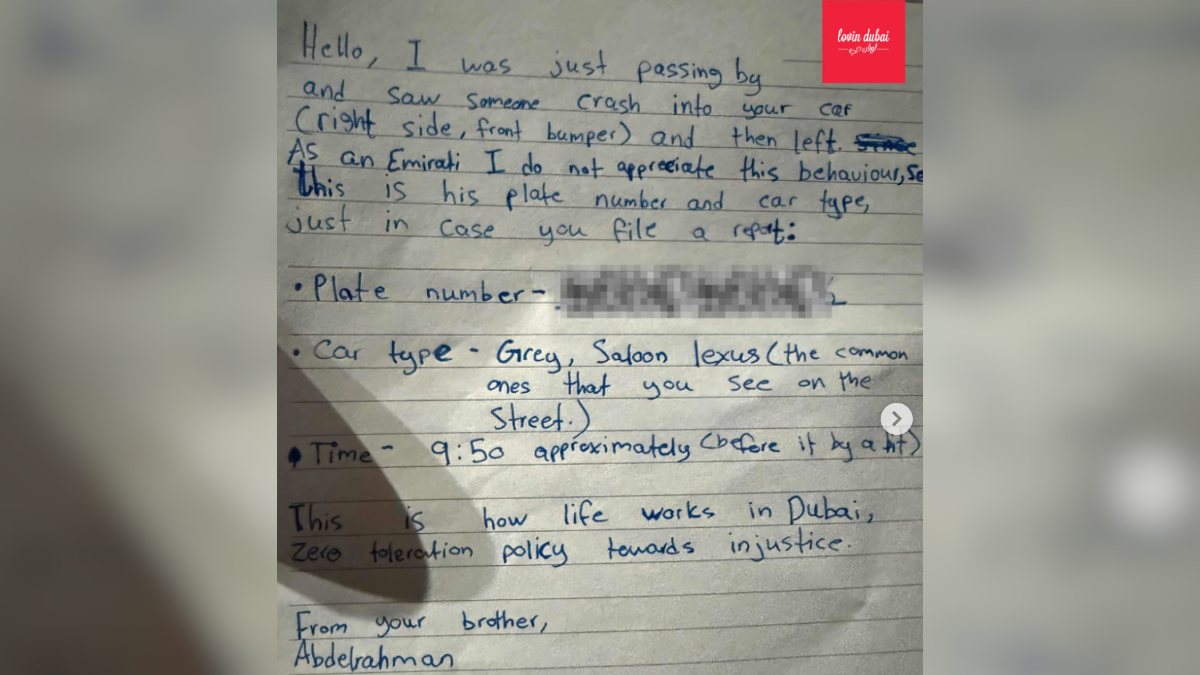 lovin dubai
Hello, I was just passing by
and saw someone crash into your car
(right side, front bumper) and then left.
As an Emirati I do not appreciate this behaviour, so
this is his plate number and car type,
just in case you file a report:
• Plate number -
• Car type - Grey, Saloon lexus (the common
ones that you see on the
street.)
• Time - 9:50 approximately (before it by a bit)
This is how life works in Dubai,
Zero toleration policy towards injustice.
From your brother,
Abdelrahman